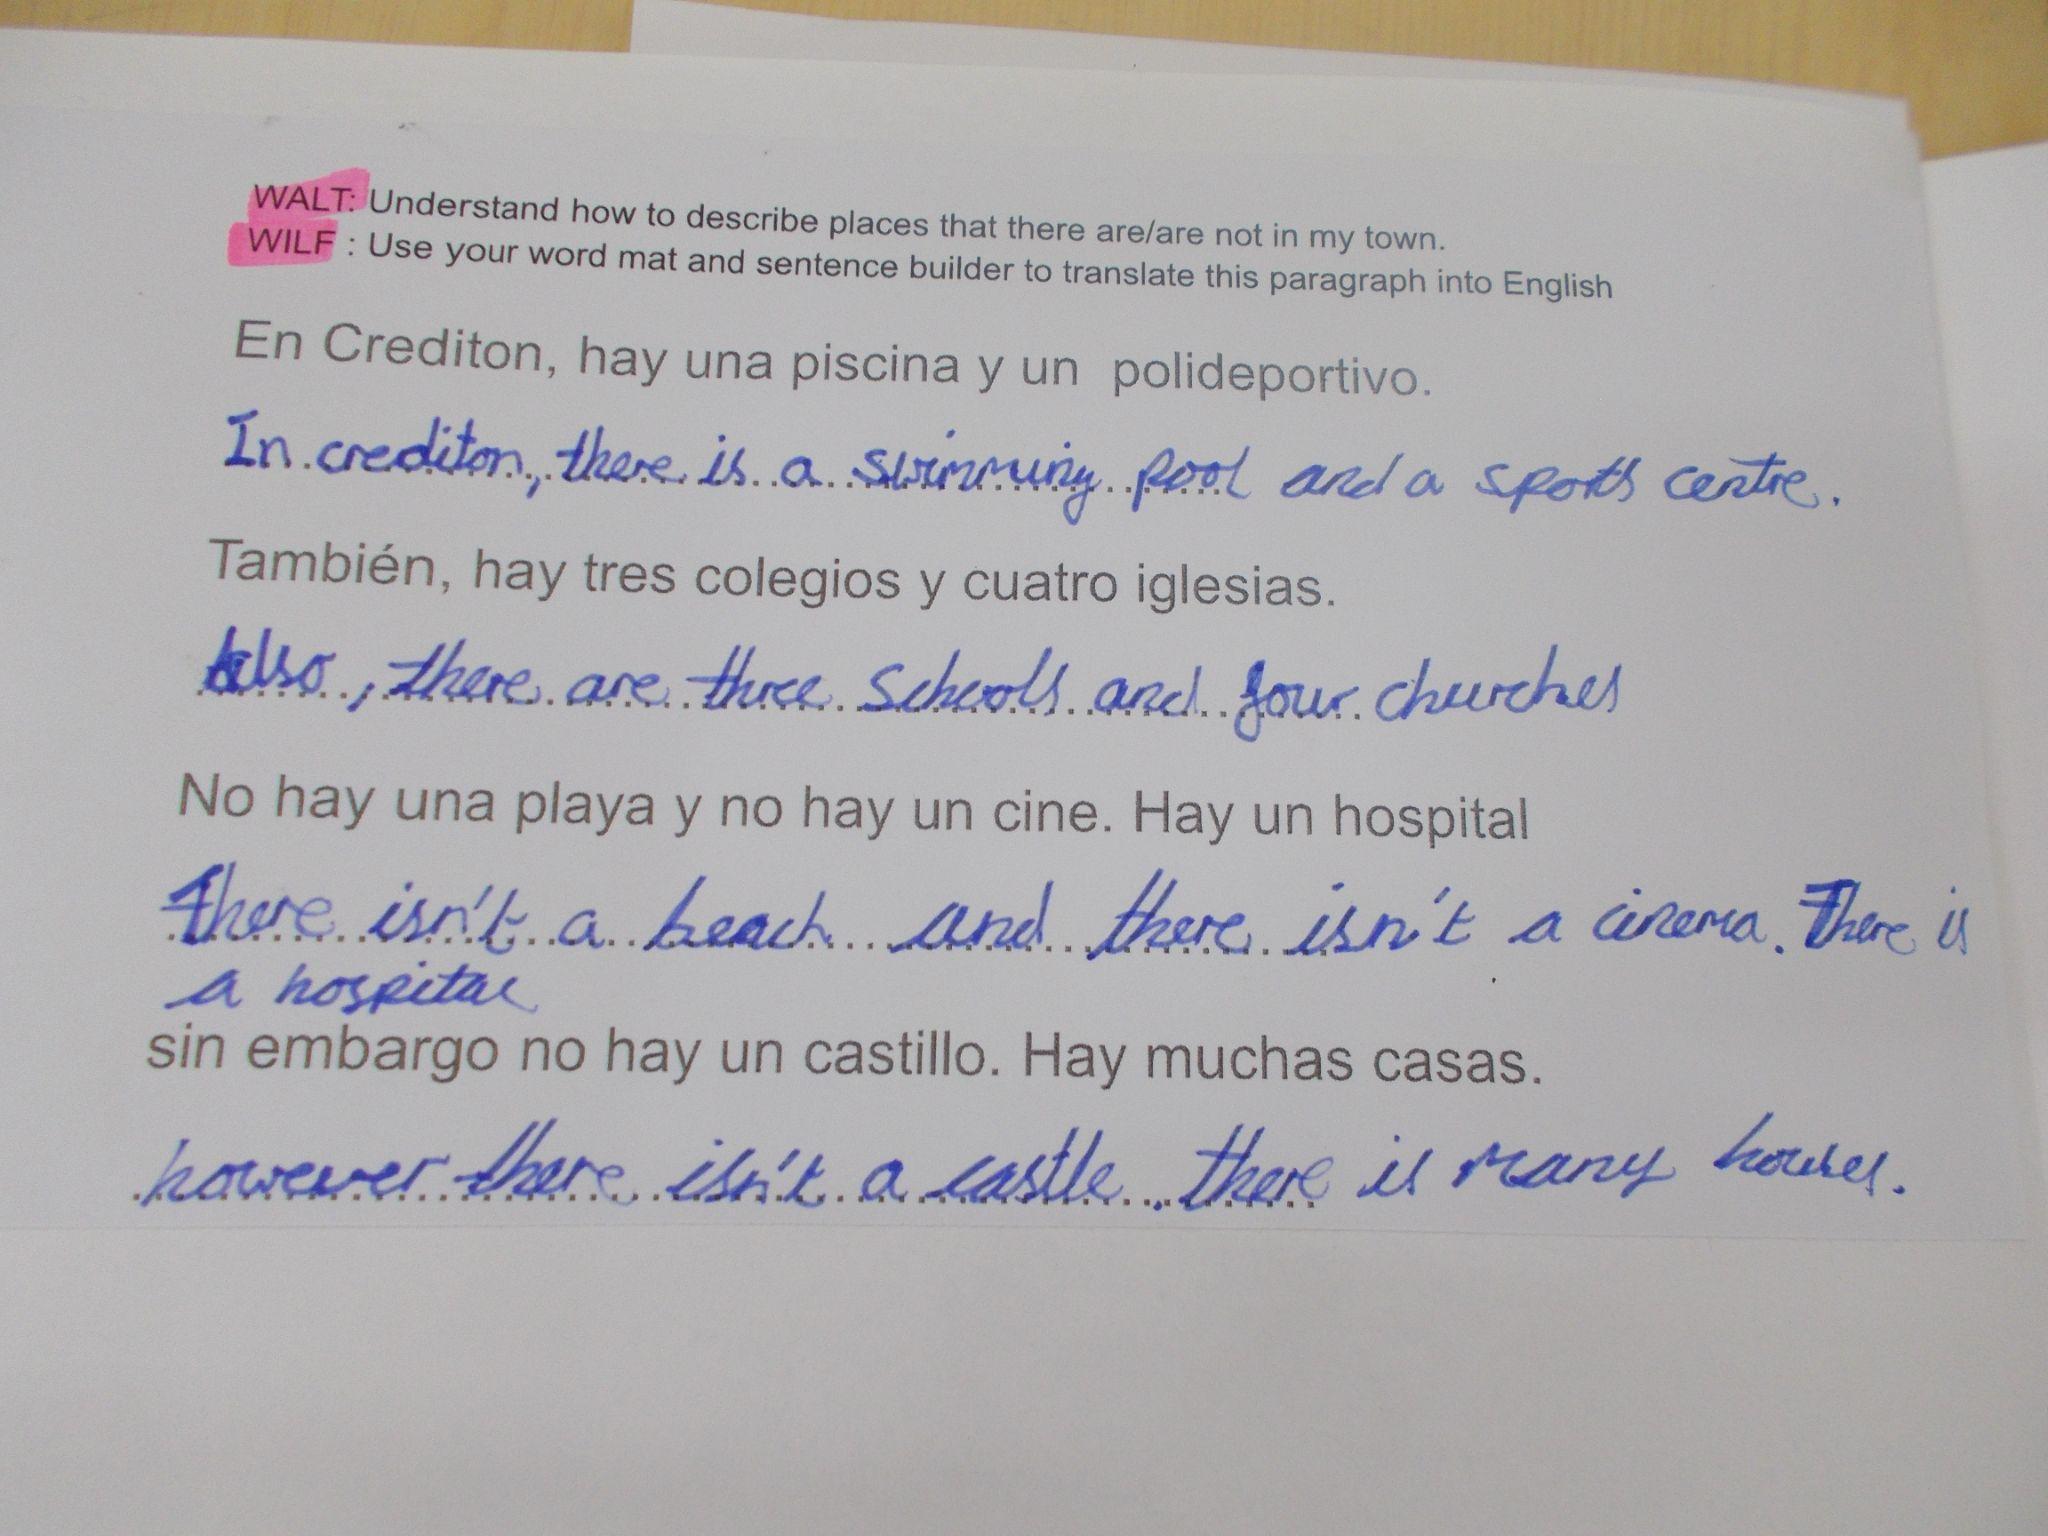 WALT: Understand how to describe places that there are/are not in my town.
WILF : Use your word mat and sentence builder to translate this paragraph into English
En Crediton, hay una piscina y un polideportivo.
In crediton, there is a swimming pool and a sports centre.
También, hay tres colegios y cuatro iglesias.
also, there are three schools and four churches
No hay una playa y no hay un cine. Hay un hospital
There isn't a beach and there isn't a cinema. There is
a hospital
sin embargo no hay un castillo. Hay muchas casas.
however there isn't a castle. there is many houses.